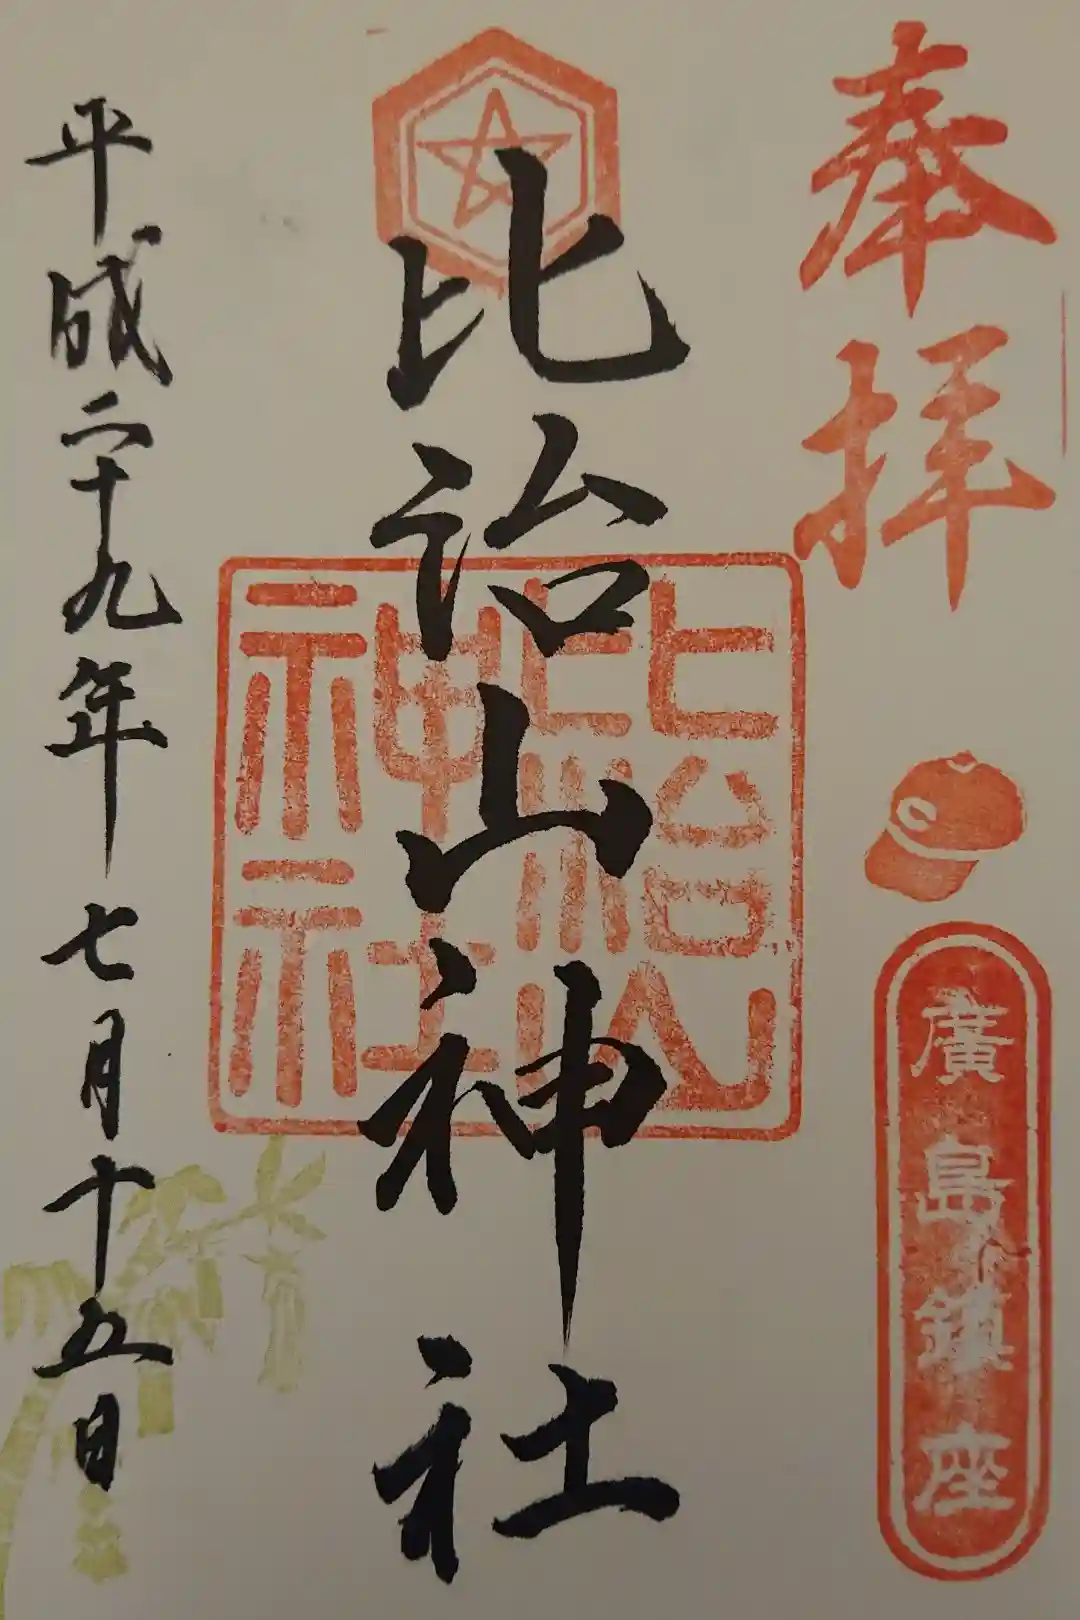 奉拝
廣島鎮座
比治山神社
比治山神社
平成二十九年七月十五日